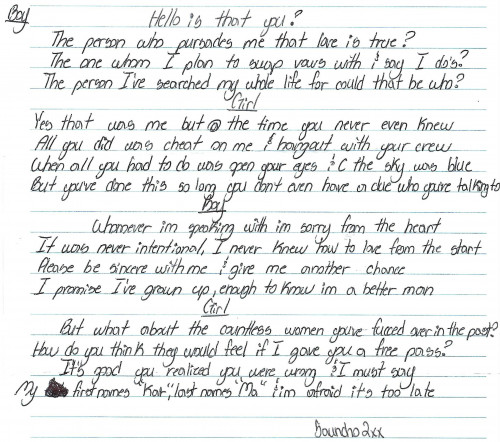 Boy
Hello is that you?
The person who pursades me that love is true?
The one whom I plan to swap vows with & say I do's?
The person I've searched my whole life for could that be who?
Girl
Yes that was me but @ the time you never even knew
All you did was cheat on me & hangout with your crew
When all you had to do was open your eyes & C the sky was blue
But you've done this so long you don't even have a clue who you're talking to
Boy
Whomever im speaking with im sorry from the heart
It was never intentional, I never knew how to love from the start
Please be sincere with me & give me another chance
I promise I've grown up, enough to know im a better man
Girl
But what about the countless women you've fucced over in the past?
How do you think they would feel if I gave you a free pass?
It's good you realized you were wrong & I must say
My first names "Kar", last names "Ma" & im afraid it's too late